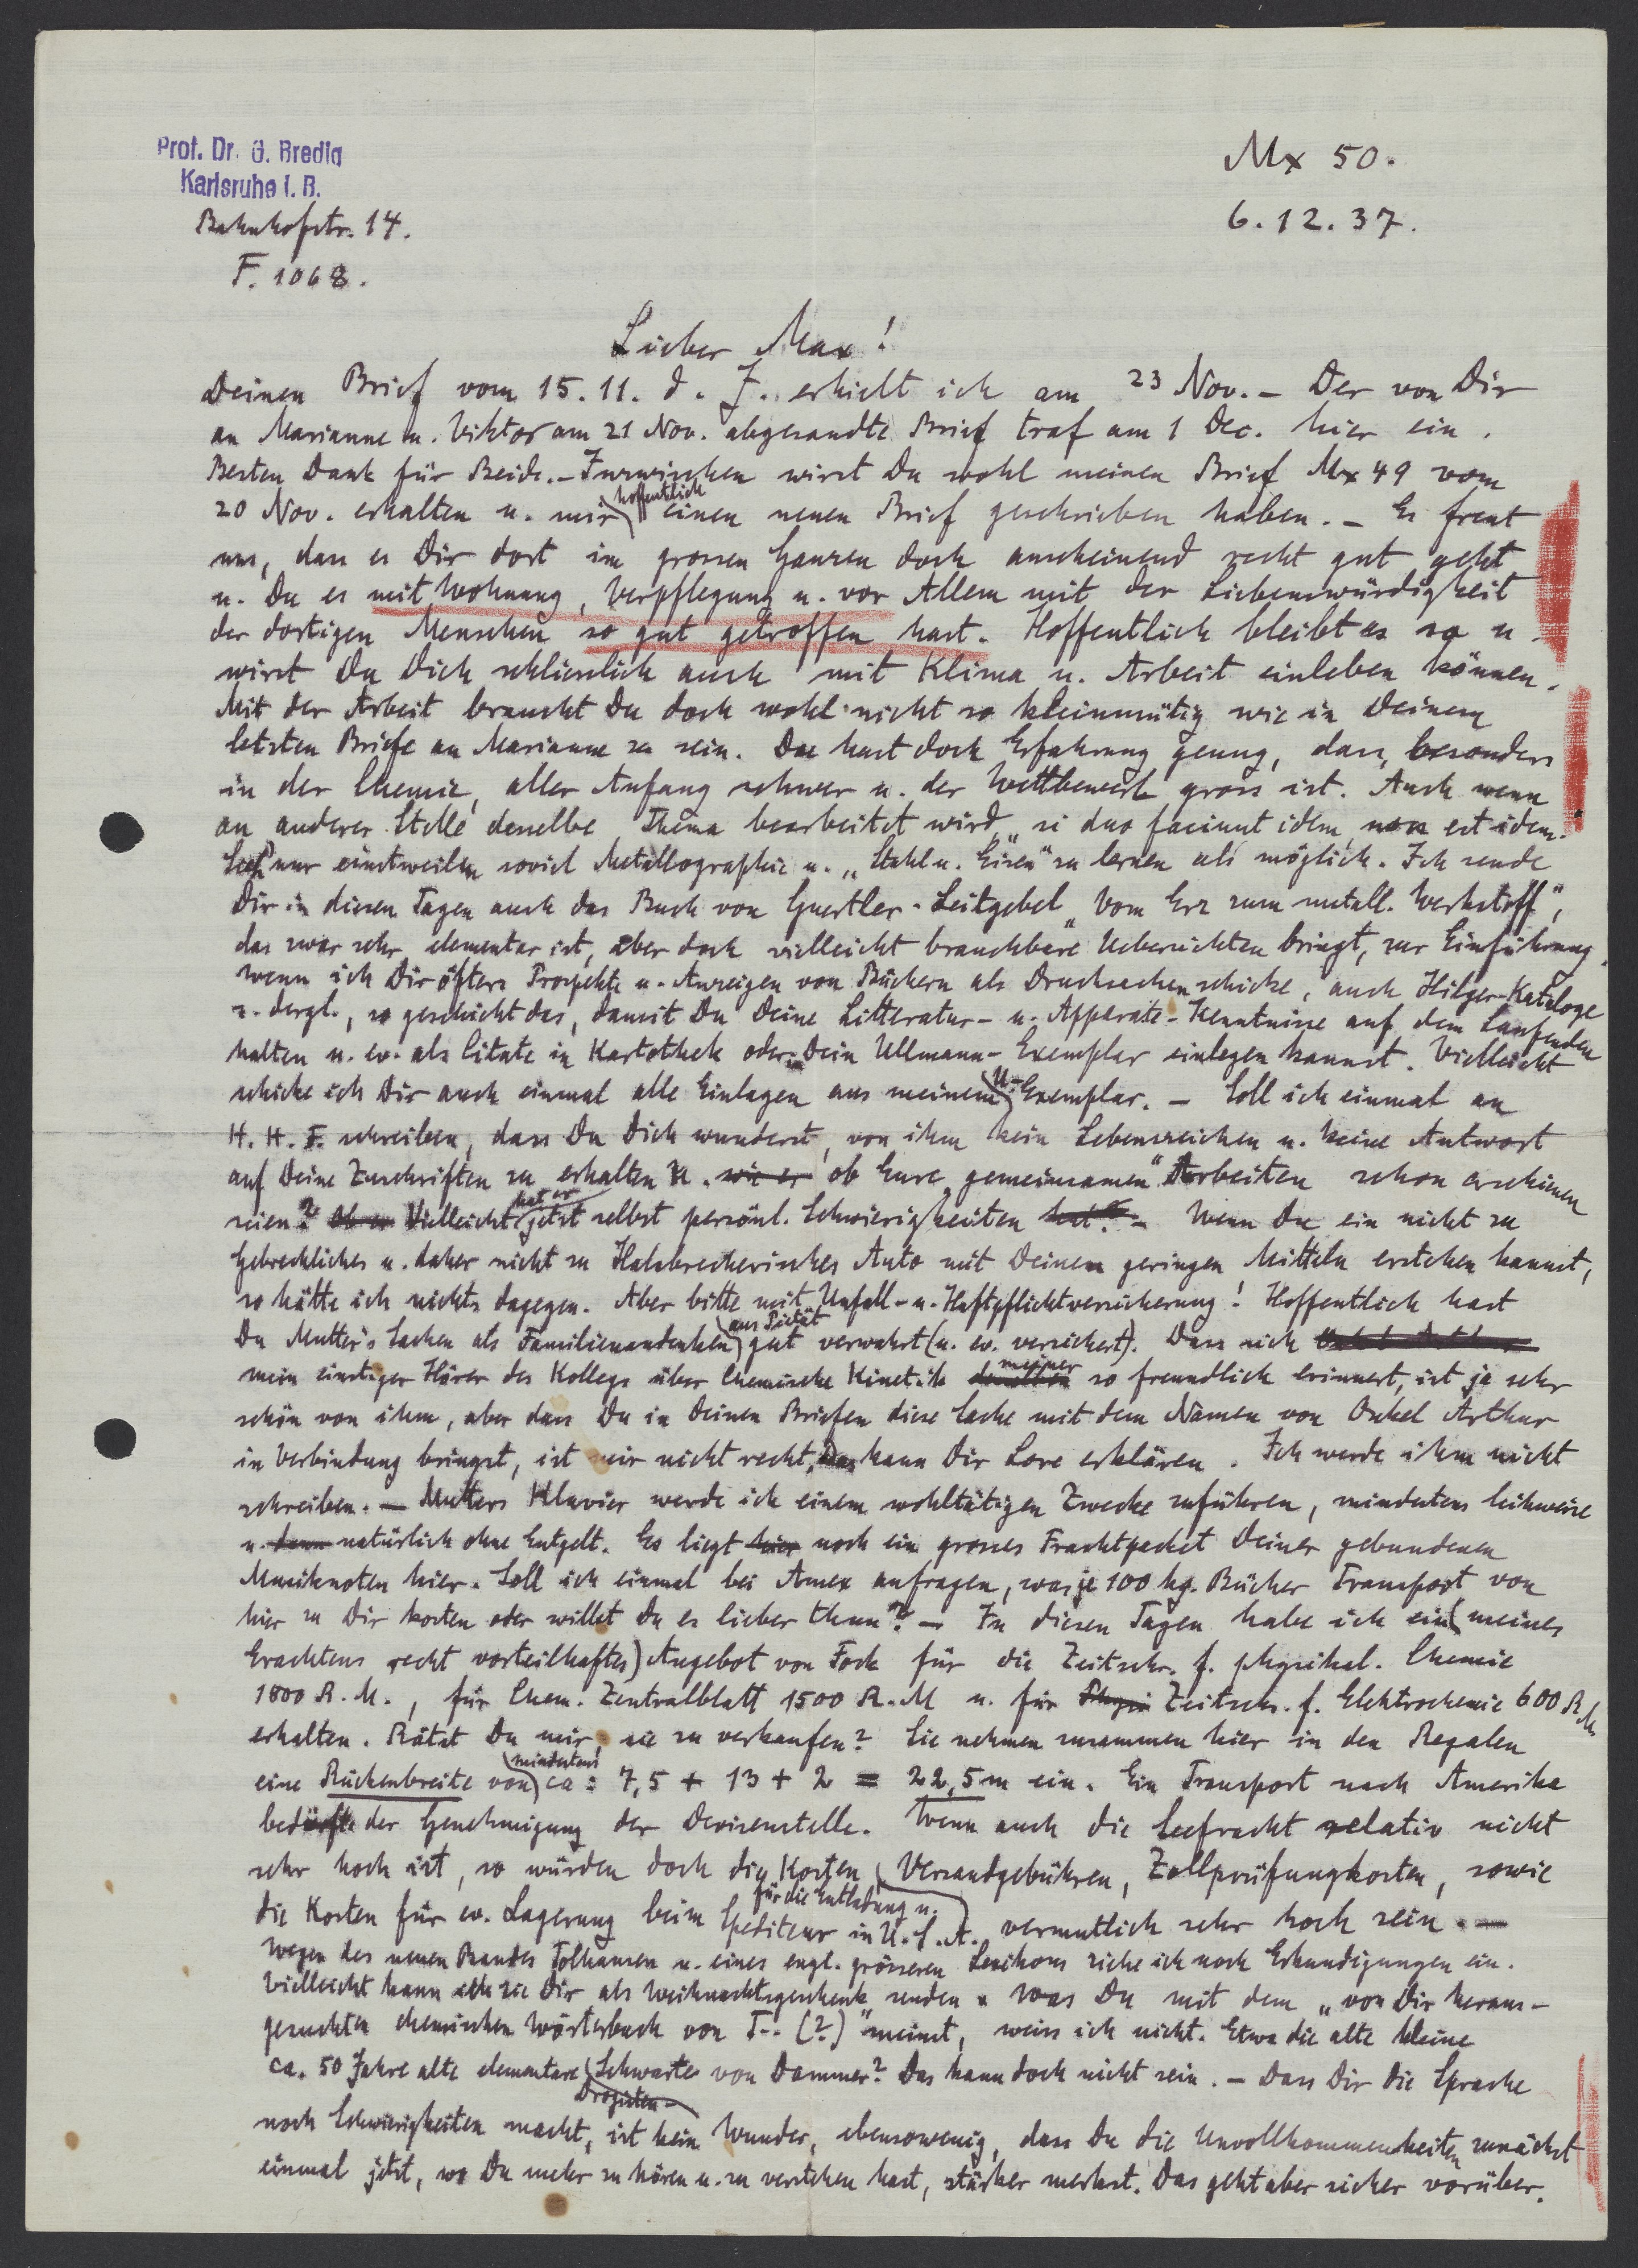 Prof. Dr. G. Bredig
Karlsruhe i. B.
Bahnhofstr. 14.
F. 1068.
Mx 50.
6.12.37.
Lieber Max!
Deinen Brief vom 15.11. d. J. erhielt ich am 23 Nov. – Der von Dir
an Marianne u. Viktor am 21 Nov. abgesandte Brief traf am 1 Dec. hier ein.
Besten Dank für Beide. – Inzwischen wirst Du wohl meinen Brief Mx 49 vom
20 Nov. erhalten u. mir hoffentlich einen neuen Brief geschrieben haben. – Es freut
uns, dass es Dir dort im grossen Ganzen doch anscheinend recht gut geht
u. Du es mit Wohnung, Verpflegung u. vor Allem mit der Liebenswürdigkeit
der dortigen Menschen so gut getroffen hast. Hoffentlich bleibt es so u.
wirst Du Dich schliesslich auch mit Klima u. Arbeit einleben können.
Mit der Arbeit brauchst Du doch wohl nicht so kleinmütig wie in Deinem
letzten Briefe an Marianne zu sein. Du hast doch Erfahrung genug, dass, besonders
in der Chemie, aller Anfang schwer u. der Wettbewerb gross ist. Auch wenn
an anderer Stelle dasselbe Thema bearbeitet wird, "si duo faciunt idem, non est idem."
nur einstweilen soviel Metallographie u. „Stahl u. Eisen" zu lernen als möglich. Ich sende
Dir in diesen Tagen auch das Buch von Guertler-Leitgebel „Vom Erz zum metall. Werkstoff",
das zwar sehr elementar ist, aber doch vielleicht brauchbare Uebersichten bringt, zur Einführung.
Wenn ich Dir öfters Prospekte u. Anzeigen von Büchern als Drucksachen schicke, auch Hilger-Kataloge
u. dergl., so geschieht das, damit Du Deine Litteratur- u. Apparate-Kenntnisse auf dem Laufenden
halten u. ev. als Citate in Kartothek oder in Dein Ullmann-Exemplar einlegen kannst. Vielleicht
schicke ich Dir auch einmal alle Einlagen aus meinem U-Exemplar. – Soll ich einmal an
H. H. F. schreiben, dass Du Dich wunderst, von ihm kein Lebenszeichen u. keine Antwort
auf Deine Zuschriften zu erhalten u. wie er ob Eure „gemeinsamen" Arbeiten schon erschienen
seien? Ob er Vielleicht hat er jetzt selbst persönl. Schwierigkeiten hat? – Wenn Du ein nicht zu
Gebrechliches u. daher nicht zu Halsbrecherisches Auto mit Deinen geringen Mitteln erstehen kannst,
so hätte ich nichts dagegen. Aber bitte mit Unfall- u. Haftpflichtversicherung! Hoffentlich hast
Du Mutter's Sachen als Familienandenken aus Pietät gut verwahrt (u. ev. versichert). Dass sich
mein einstiger Hörer des Kollegs über Chemische Kinetik meiner so freundlich erinnert, ist ja sehr
schön von ihm, aber dass Du in Deinen Briefen diese Sache mit dem Namen von Onkel Arthur
in Verbindung bringst, ist mir nicht recht, Das kann Dir Lore erklären. Ich werde ihm nicht
schreiben. – Mutters Klavier werde ich einem wohltätigen Zwecke zuführen, mindestens leihweise
u. dann natürlich ohne Entgelt. Es liegt hier noch ein grosses Frachtpacket Deiner gebundenen
Musiknoten hier. Soll ich einmal bei Amex anfragen, was je 100 kg. Bücher Transport von
hier zu Dir kosten oder willst Du es lieber thun? – In diesen Tagen habe ich ein (meines
Erachtens recht vorteilhaftes) Angebot von Fock für die Zeitschr. f. physikal. Chemie
1800 R.M., für Chem. Zentralblatt 1500 R.M u. für Zeitschr. f. Elektrochemie 600 RM
erhalten. Rätst Du mir, sie zu verkaufen? Sie nehmen zusammen hier in den Regalen
eine Rückenbreite von mindestens ca: 7,5 + 13 + 2 = 22,5 m ein. Ein Transport nach Amerika
bedürfte der Genehmigung der Devisenstelle. Wenn auch die Seefracht relativ nicht
sehr hoch ist, so würden doch die Kosten (Versandgebühren, Zollprüfungkosten, sowie
die Kosten für ev. Lagerung beim für die Entladung u. Spediteur in U.S.A. vermutlich sehr hoch sein. –
Wegen des neuen Bandes Tolhausen u. eines engl. grösseren Lexikons ziehe ich noch Erkundigungen ein.
Vielleicht kann ich sie Dir als Weihnachtsgeschenk senden. Was Du mit dem „von Dir heraus-
gesuchten chemischen Wörterbuch von T-- (?)" meinst, weiss ich nicht. Etwa die alte kleine
ca. 50 Jahre alte elementare Drogisten- Schwarte von Dammer? Das kann doch nicht sein. – Dass Dir die Sprache
noch Schwierigkeiten macht, ist kein Wunder, ebensowenig, dass Du die Unvollkommenheiten zunächst
einmal jetzt, wo Du mehr zu hören u. zu verstehen hast, stärker merkst. Das geht aber sicher vorüber.